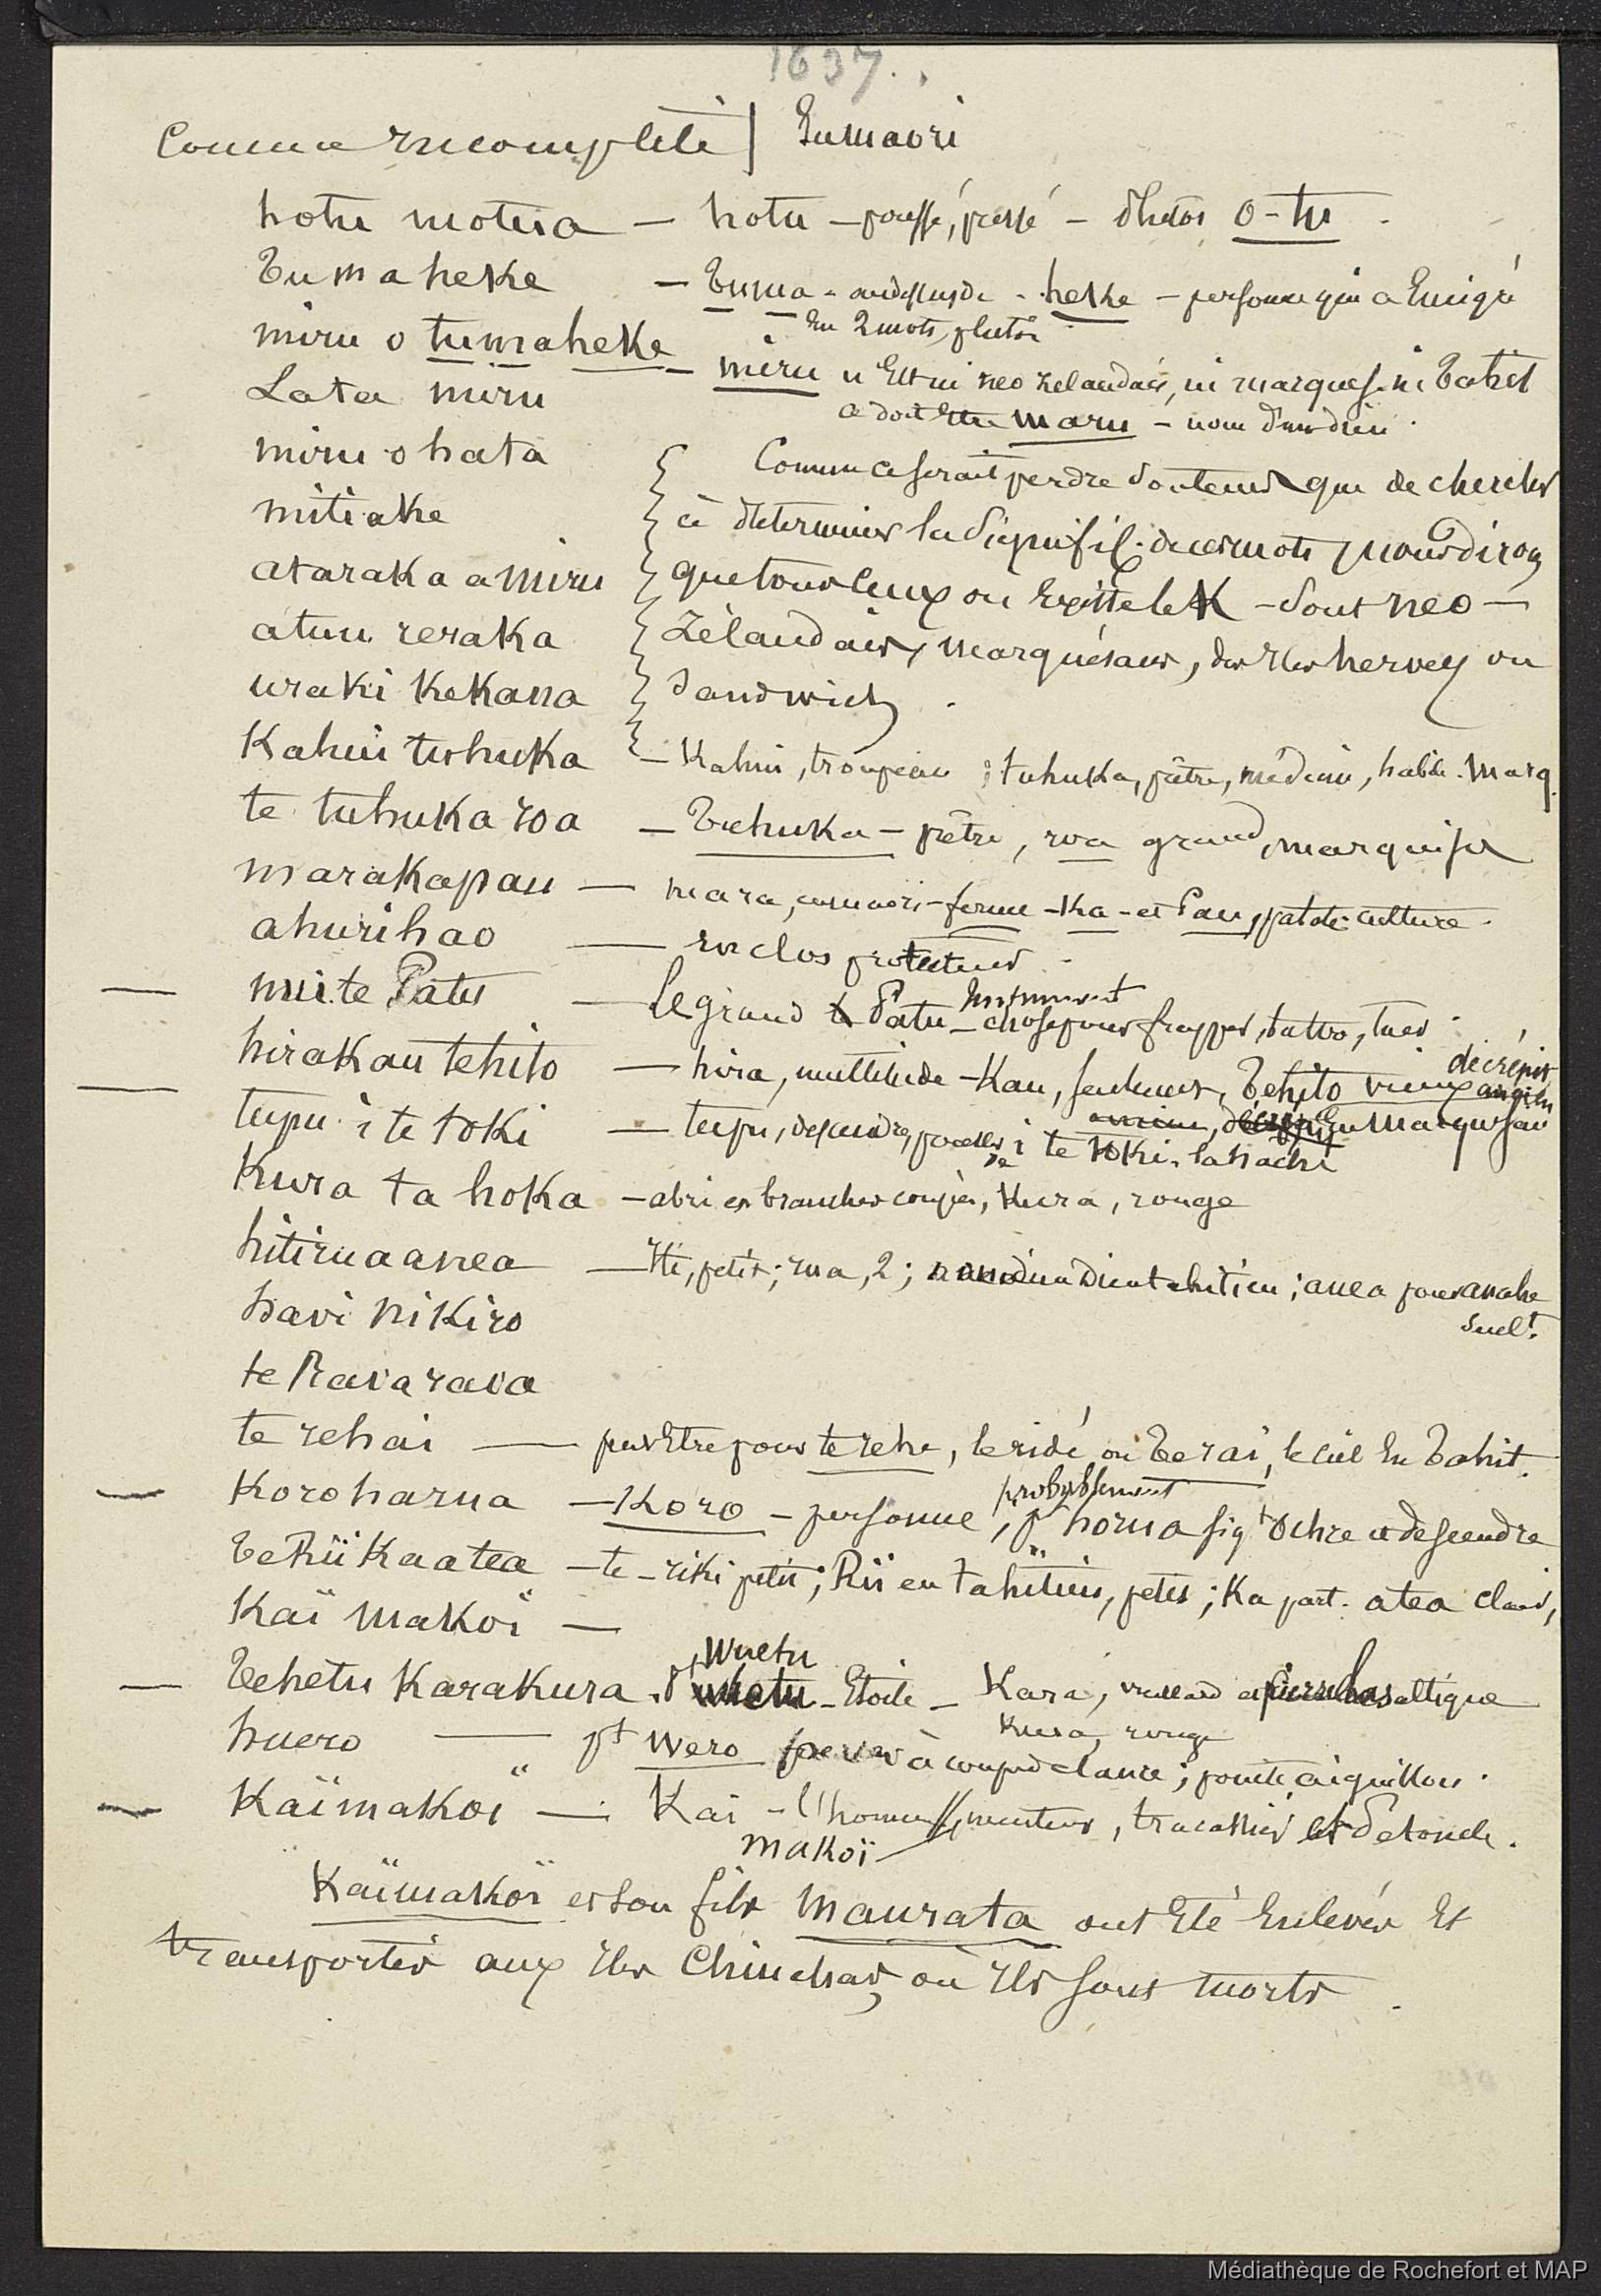 1637.
Comme incomplète | En maori
hotu motua — hotu — poussé, pressé — d'hotos o-tu.
Tumaheke — Tuma - au dessus de - heke — personne qui a Emigré
— En 2 mots, plutôt
miru o tumaheke — miru n'Est ni neo zelandais, ni marques. ni Tahit
Lata miru
ce doit Etre maru — nom d'un dieu.
miru o hata
Comme ce serait perdre son temps que de chercher
mitiake
à determiner la signific. de ces mots, nous dirons
ataraka a miru
que tous ceux où Existe le K — sont neo —
atuu reraka
Zèlandais, marquésans, des Iles hervey ou
uraki kekana
Sandwich.
Kahui tuhuka — Kahui, troupeau ; tuhuka, prêtre, médecin, habile. Marq.
te tuhuka roa — Tuhuka — prêtre, roa grand, marquisien
marakapau — mara, en maori - ferme - Ka - et Pau, patate culture.
ahurihao — enclos protecteur.
nui te Patu — Le grand te Patu — Instrument chose pour frapper, battre, tuer.
hirakau tehito — hira, multitude — Kau, seulement, Tehito vieux ancien décrépit
ancien, décrépit En Marquesan
tupu i te toki — tupu, descendre, pousser i te toki - la hache
de
Kura ta hoka — abri en branches coupées, Kura, rouge
hitirua anea — Iti, petit ; rua, 2 ; d'un Dieu tahitien ; anea pour anahe
seult.
havi nikiro
te Ravarava
te rehai — peut Etre pour te rehe, le ridé ou Te rai, le ciel En Tahit.
Koroharua — Koro — personne, pt probablement horua sigt Ochre et descendre
Te Rii Kaatea — te - riki petit ; Rii en tahitien, petit ; Ka part. atea clair,
Kaï makoï —
Tehetu Karakura. pt Whetu whetu - Etoile — Kara, vieillard et pierre basaltique
Kura, rouge
huero — pt wero percer à coups de lance ; pointe aiguillon.
Kaïmakoi — Kai — l'homme, menteur, tracassier
makoï
Kaïmakoï et son fils Maurata ont Eté Enlevés Et
transportés aux Iles Chinchas, où Ils sont morts.
Médiathèque de Rochefort et MAP